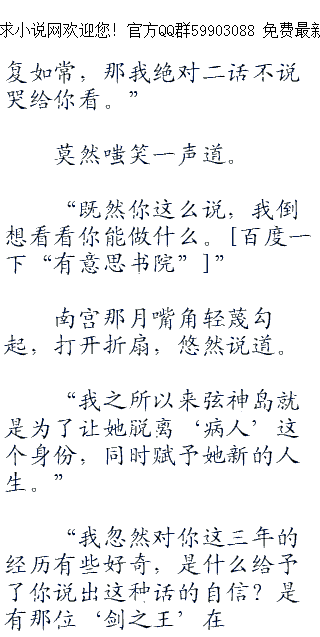 求小说网欢迎您！官方QQ群59903088 免费最新
复如常，那我绝对二话不说
哭给你看。”
莫然嗤笑一声道。
“既然你这么说，我倒
想看看你能做什么。[百度一
下“有意思书院”]”
南宫那月嘴角轻蔑勾
起，打开折扇，悠然说道。
“我之所以来弦神岛就
是为了让她脱离‘病人’这
个身份，同时赋予她新的人
生。”
“我忽然对你这三年的
经历有些好奇，是什么给予
了你说出这种话的自信？是
有那位‘剑之王’在